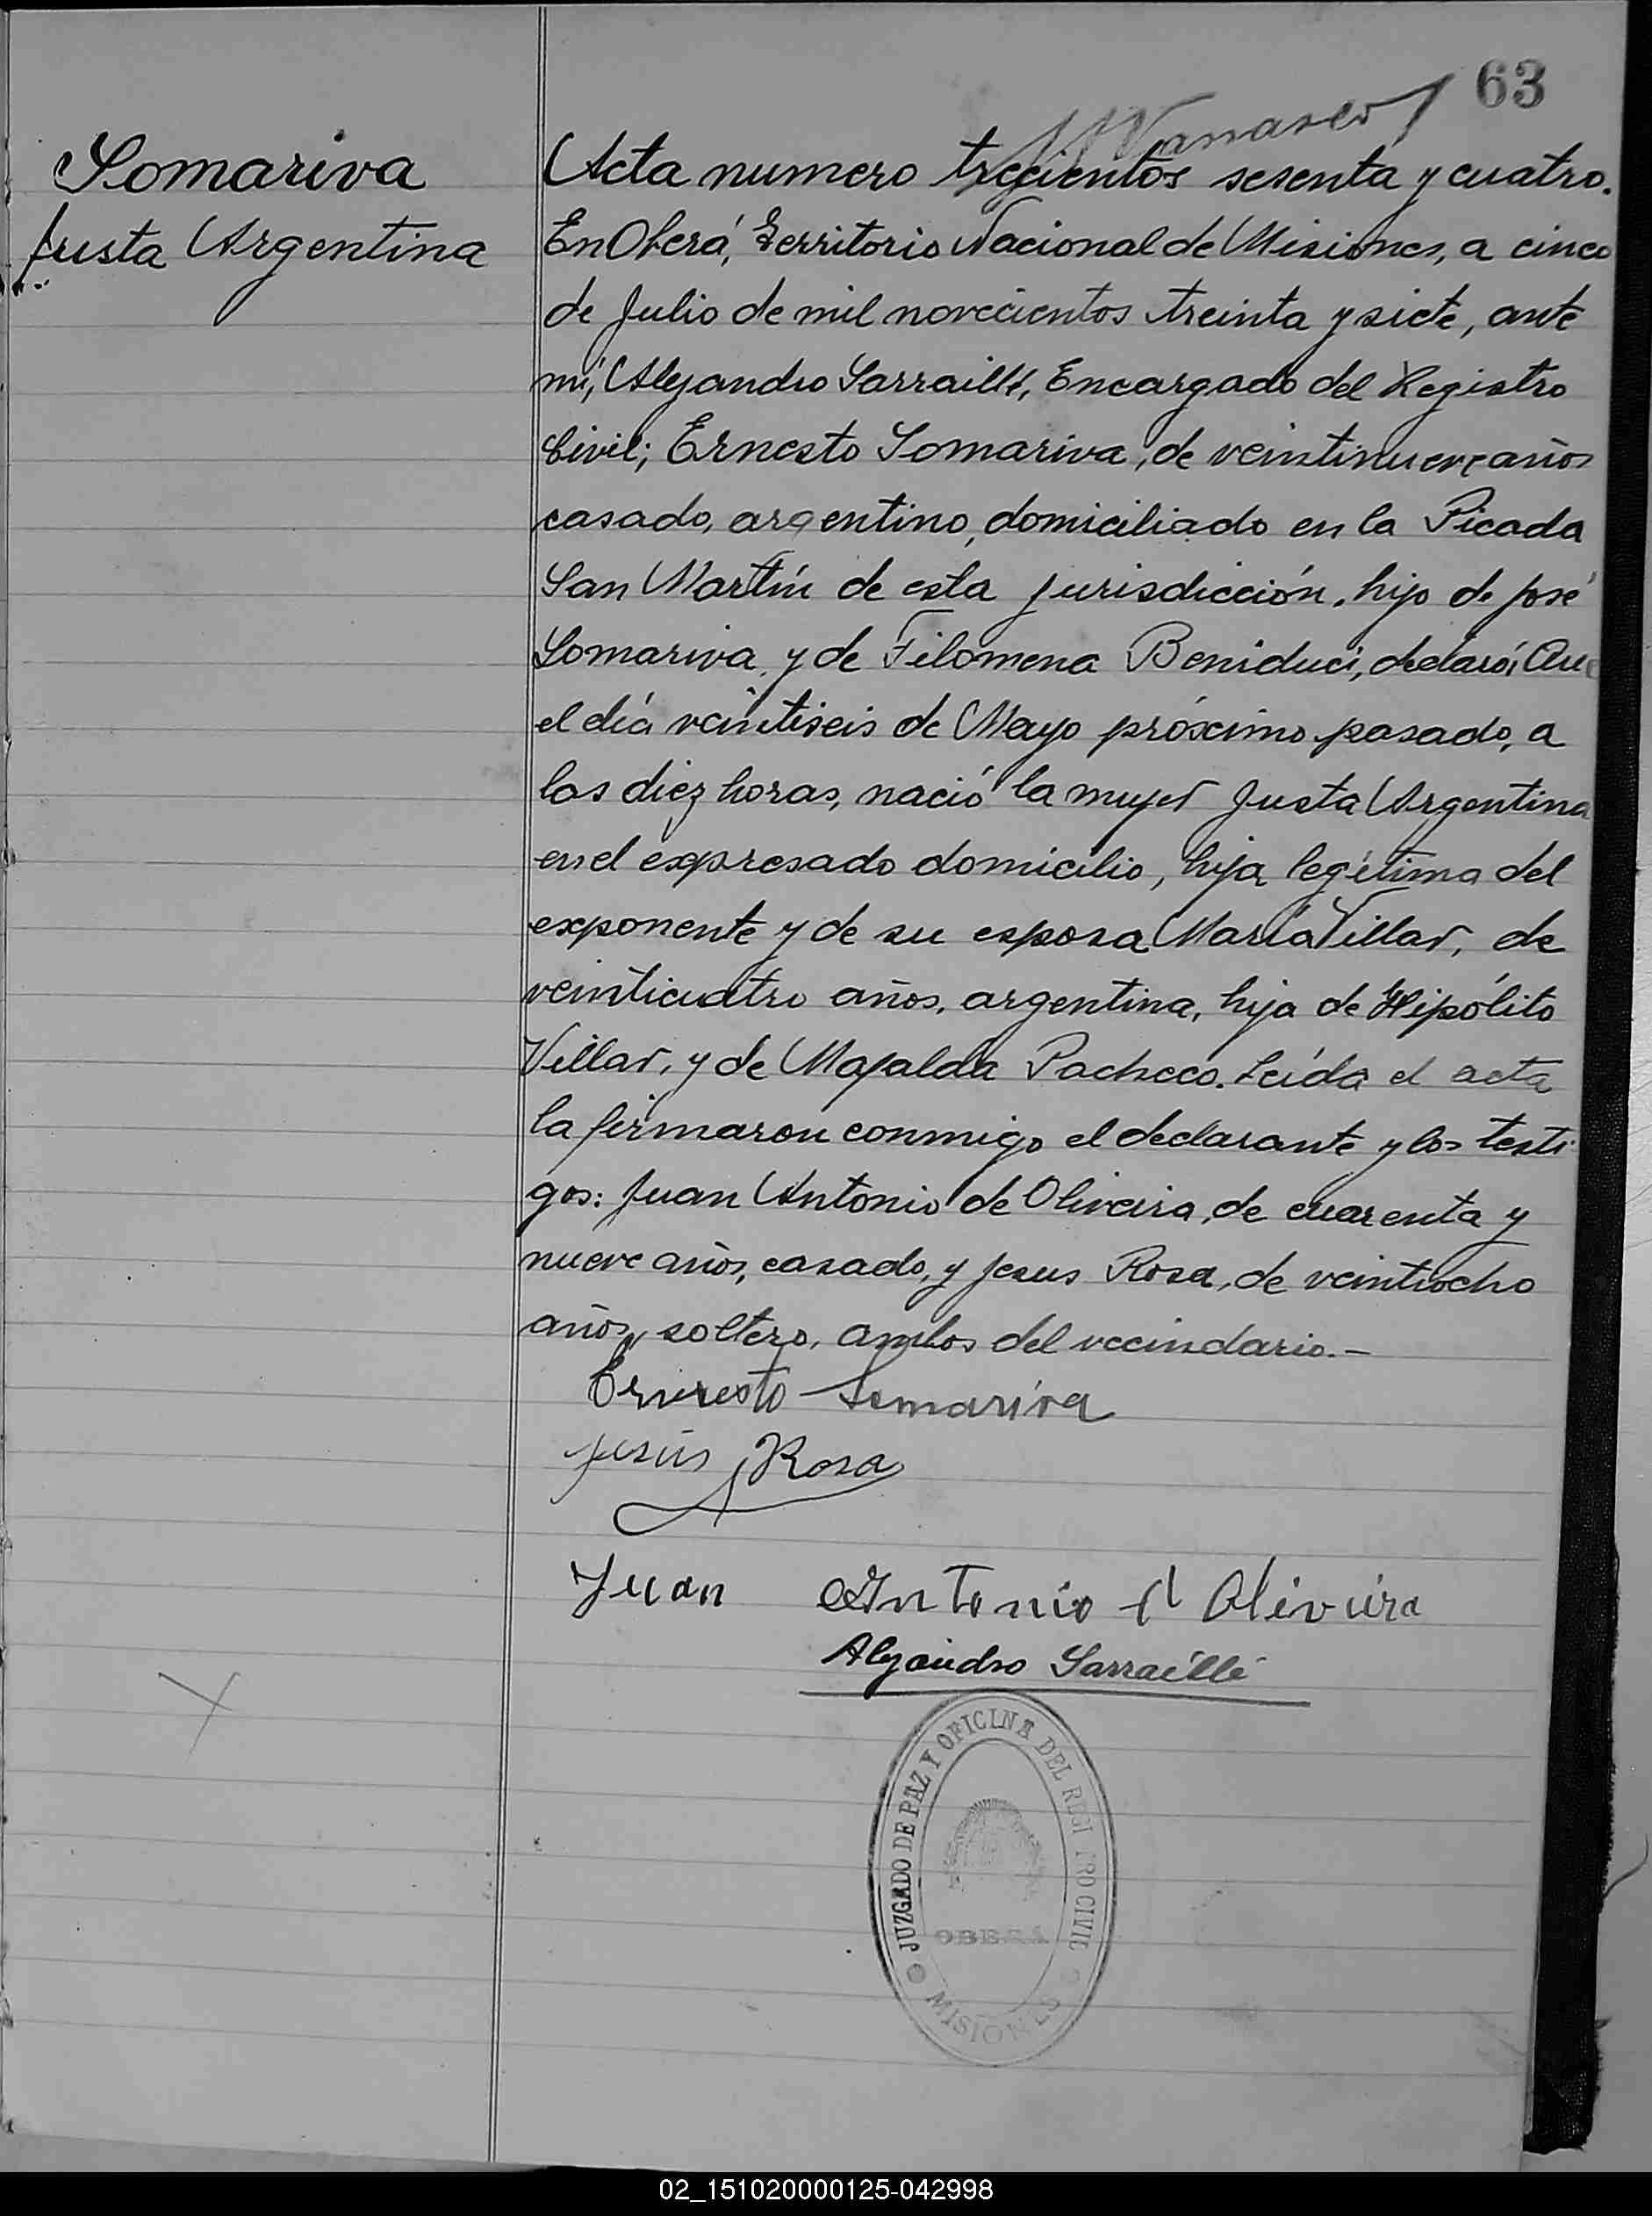 63
Somariva
Justa Argentina
Acta numero trecientos sesenta y cuatro.
En Oberá, Territorio Nacional de Misiones, a cinco
de Julio de mil novecientos treinta y siete, ante
mí, Alejandro Sarraillé, Encargado del Registro
Civil; Ernesto Somariva, de veintinueve años
casado, argentino, domiciliado en la Picada
San Martín de esta jurisdicción, hijo de José
Somariva, y de Filomena Beniduci, declaró: Que
el día veintiseis de Mayo próximo pasado, a
las diez horas, nació la mujer Justa Argentina
en el expresado domicilio, hija legítima del
exponente y de su esposa María Villar, de
veinticuatro años, argentina, hija de Hipólito
Villar, y de Mafalda Pacheco. Leída el acta
la firmaron conmigo el declarante y los testi
gos: Juan Antonio de Oliveira, de cuarenta y
nueve años, casado, y Jesus Rosa, de veintiocho
años, soltero, ambos del vecindario.-
Ernesto Somariva
Jesús Rosa
Juan Antonio d Oliviira
Alejandro Sarraillé
JUZGADO DE PAZ Y OFICINA DEL REGI TRO CIVIL
OBERA
MISIONES
02_151020000125-042998